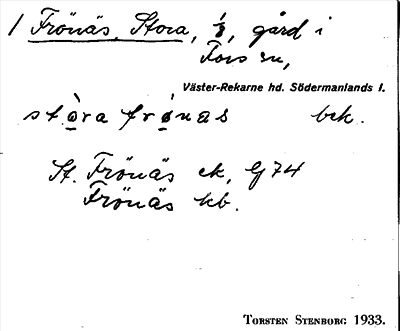 1 Frönäs, Stora, 1/8, gård i
Fors sn,
Väster-Rekarne hd. Södermanlands l.
stòra frónas bek.
St. Frönäs ek, Gj 74
Frönäs kb.
TORSTEN STENBORG 1933.